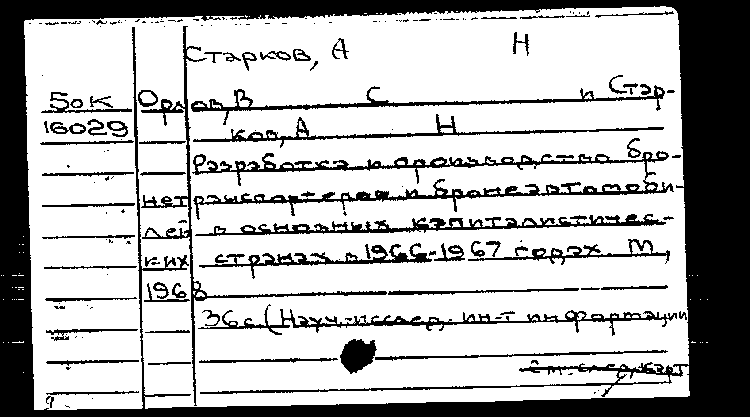 Старков, А Н
Бок Орлов, В С и Стар-
16029 ков, А Н
Разработка и производство бро-
нетранспортеров и бронеавтомоби-
лей в основных капиталистичес-
ких странах в 1966-1967 годах. М,
1968
36 с. (Науч.-исслед. ин-т информации
См. след. карт